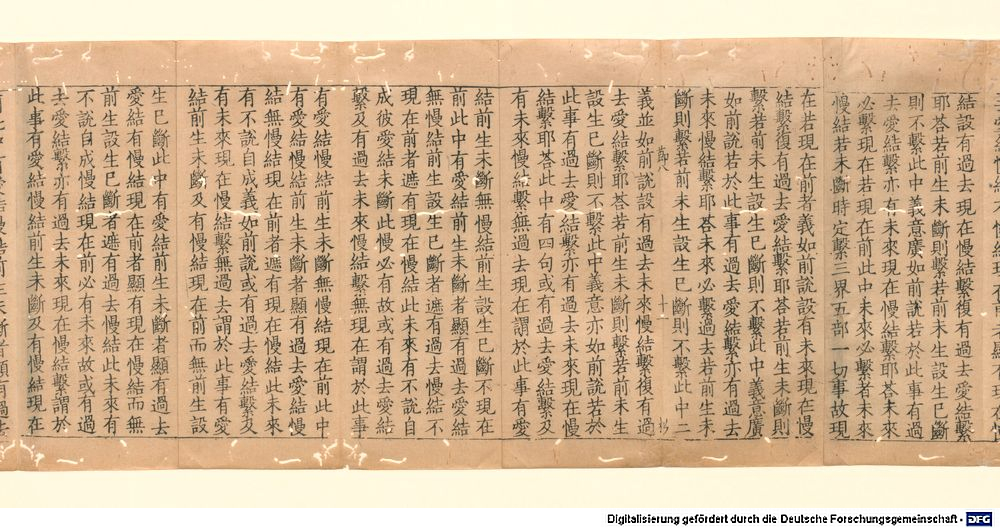 結設有過去現在慢結繫復有過去愛結繫
耶荅若前生未斷則繫若前未生設生已斷
則不繫此中義意廣如前說若於此事有過
去愛結繫亦有未來現在慢結繫耶荅未來
必繫現在若現在前此中未來必繫者未來
慢結若未斷時定繫三界五部一切事故現
在若現在前者義如前說設有未來現在慢
結繫復有過去愛結繫耶荅若前生未斷則
繫若前未生設生已斷則不繫此中義意廣
如前說若於此事有過去愛結繫亦有過去
未來慢結繫耶荅未來必繫過去若前生未
斷則繫若前未生設生已斷則不繫此中二
義並如前說設有過去未來慢結繫復有過
去愛結繫耶荅若前生未斷則繫若前未生
設生已斷則不繫此中義意亦如前說若於
此事有過去愛結繫亦有過去未來現在慢
結繫耶荅此中有四句或有過去愛結繫無
有未來慢結繫無過去現在謂於此事有愛
結前生未斷無慢結前生設生已斷不現在
前此中有愛結前生未斷者顯有過去愛結
無慢結前生設生已斷者遮有過去慢結不
現在前者遮有現在慢結此未來有不說自
成彼愛結未斷此必有故或有過去愛結
繫及有過去未來慢結繫無現在謂於此事
有愛結慢結前生未斷無慢結現在前此中
有愛結慢結前生未斷者顯有過去愛結慢
結無慢結現在前者遮有現在慢結此未來
有不說自成義如前說或有過去愛結繫及
有未來現在慢結繫無過去謂於此事有愛
結前生未斷及有慢結現在前而無前生設
生已斷此中有愛結前生未斷者顯有過去
愛結有慢結現在前者顯有現在慢結而無
前生設生已斷者遮有過去慢結此未來有
不說自成慢結現在前必有未來故或有過
去愛結繫亦有過去未來現在慢結繫謂於
此事有愛結慢結前生未斷及有慢結現在
Digitalisierung gefördert durch die Deutsche Forschungsgemeinschaft - DFG